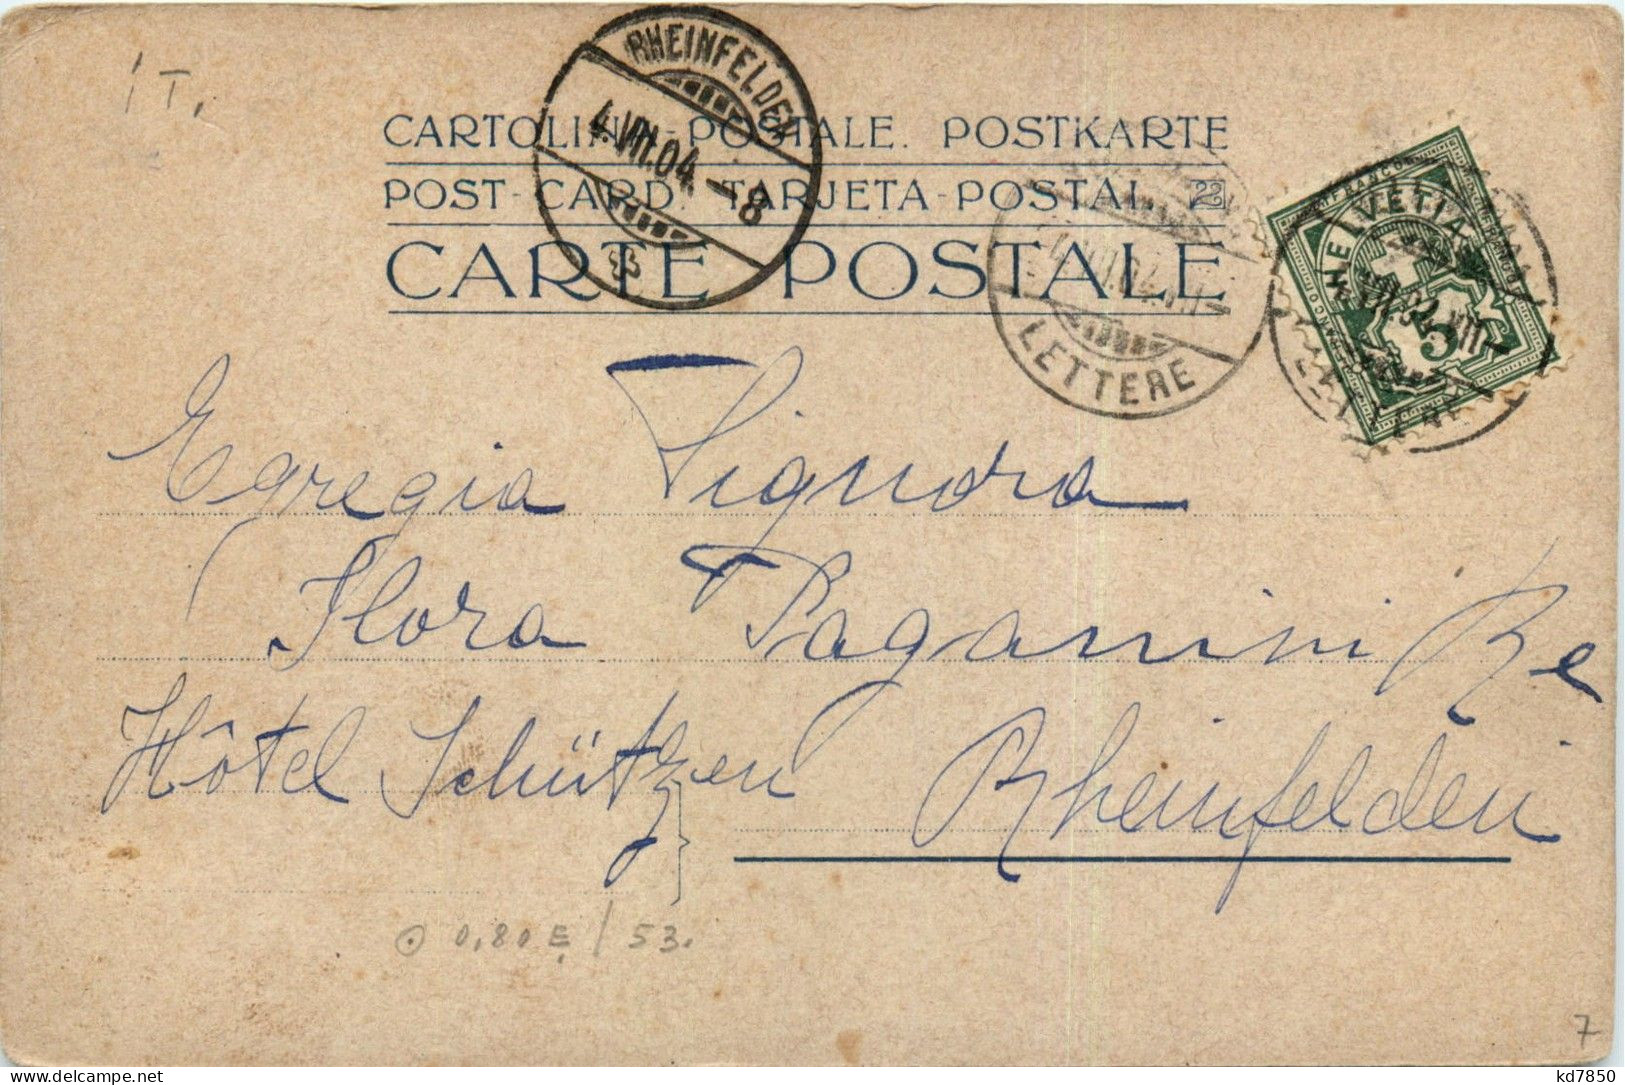 1 T.
RHEINFELDEN
4.VII.04.–8
CARTOLINA-POSTALE. POSTKARTE
POST-CARD. TARJETA-POSTAL. 22
CARTE POSTALE
LETTERE
FRANCO
HELVETIA
5
Egregia Signora
Flora Paganini Re
Hôtel Schützen
Rheinfelden
0,80 E / 53.
7
kd7850